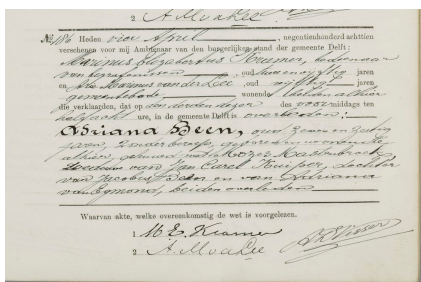 2. A. M. v d Lee
No. 186 Heden vier April, negentienhonderd achttien
verschenen voor mij Ambtenaar van den burgerlijken stand der gemeente Delft:
Marinus Elizabertus Kramer, bedienaar
van begrafenissen, oud jaren
en Marinus van der Lee, oud vijftig jaren
gemeentebode wonende beiden alhier
die verklaarden, dat op den derden dezer des voormiddags ten
half acht ure, in de gemeente Delft is overleden:
Adriana Been, oud zeven en zestig
jaren, zonder beroep, geboren en wonende
alhier, gehuwd met
weduwe van Jan Carel Kuijper, dochter
van Jacobus Been en van Adriana
van Egmond, beiden overleden
Waarvan akte, welke overeenkomstig de wet is voorgelezen.
1. M. E. Kramer
2. A. M. v d Lee